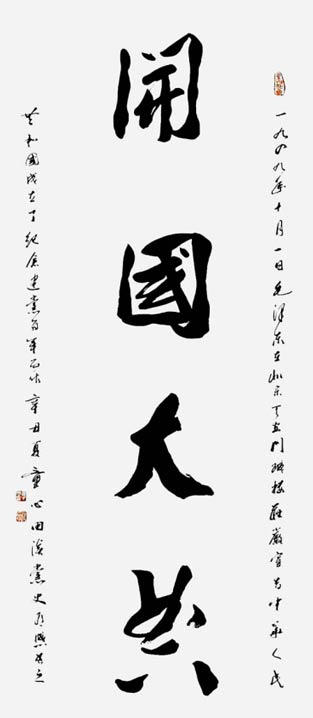 開國大典
一九四九年十月一日毛泽东在北京天安門城楼莊嚴宣告中華人民
共和國成立了纪念建黨百年而作辛丑夏童心田读黨史有興書之